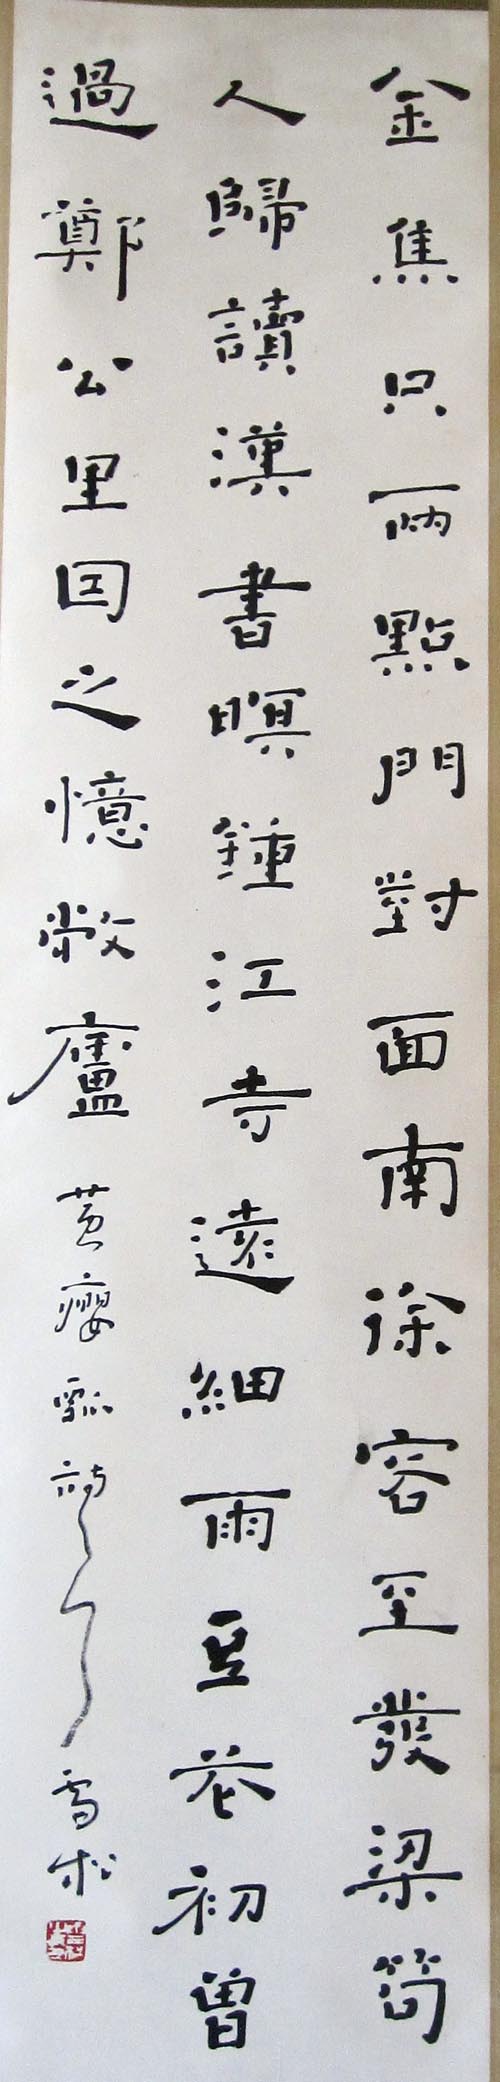 金焦只兩點門對面南徐客至發梁笱
人歸讀漢書暝鐘江寺遠細雨豆花初曾
過鄭公里因之憶敝廬 黃癭瓢詩 雪松